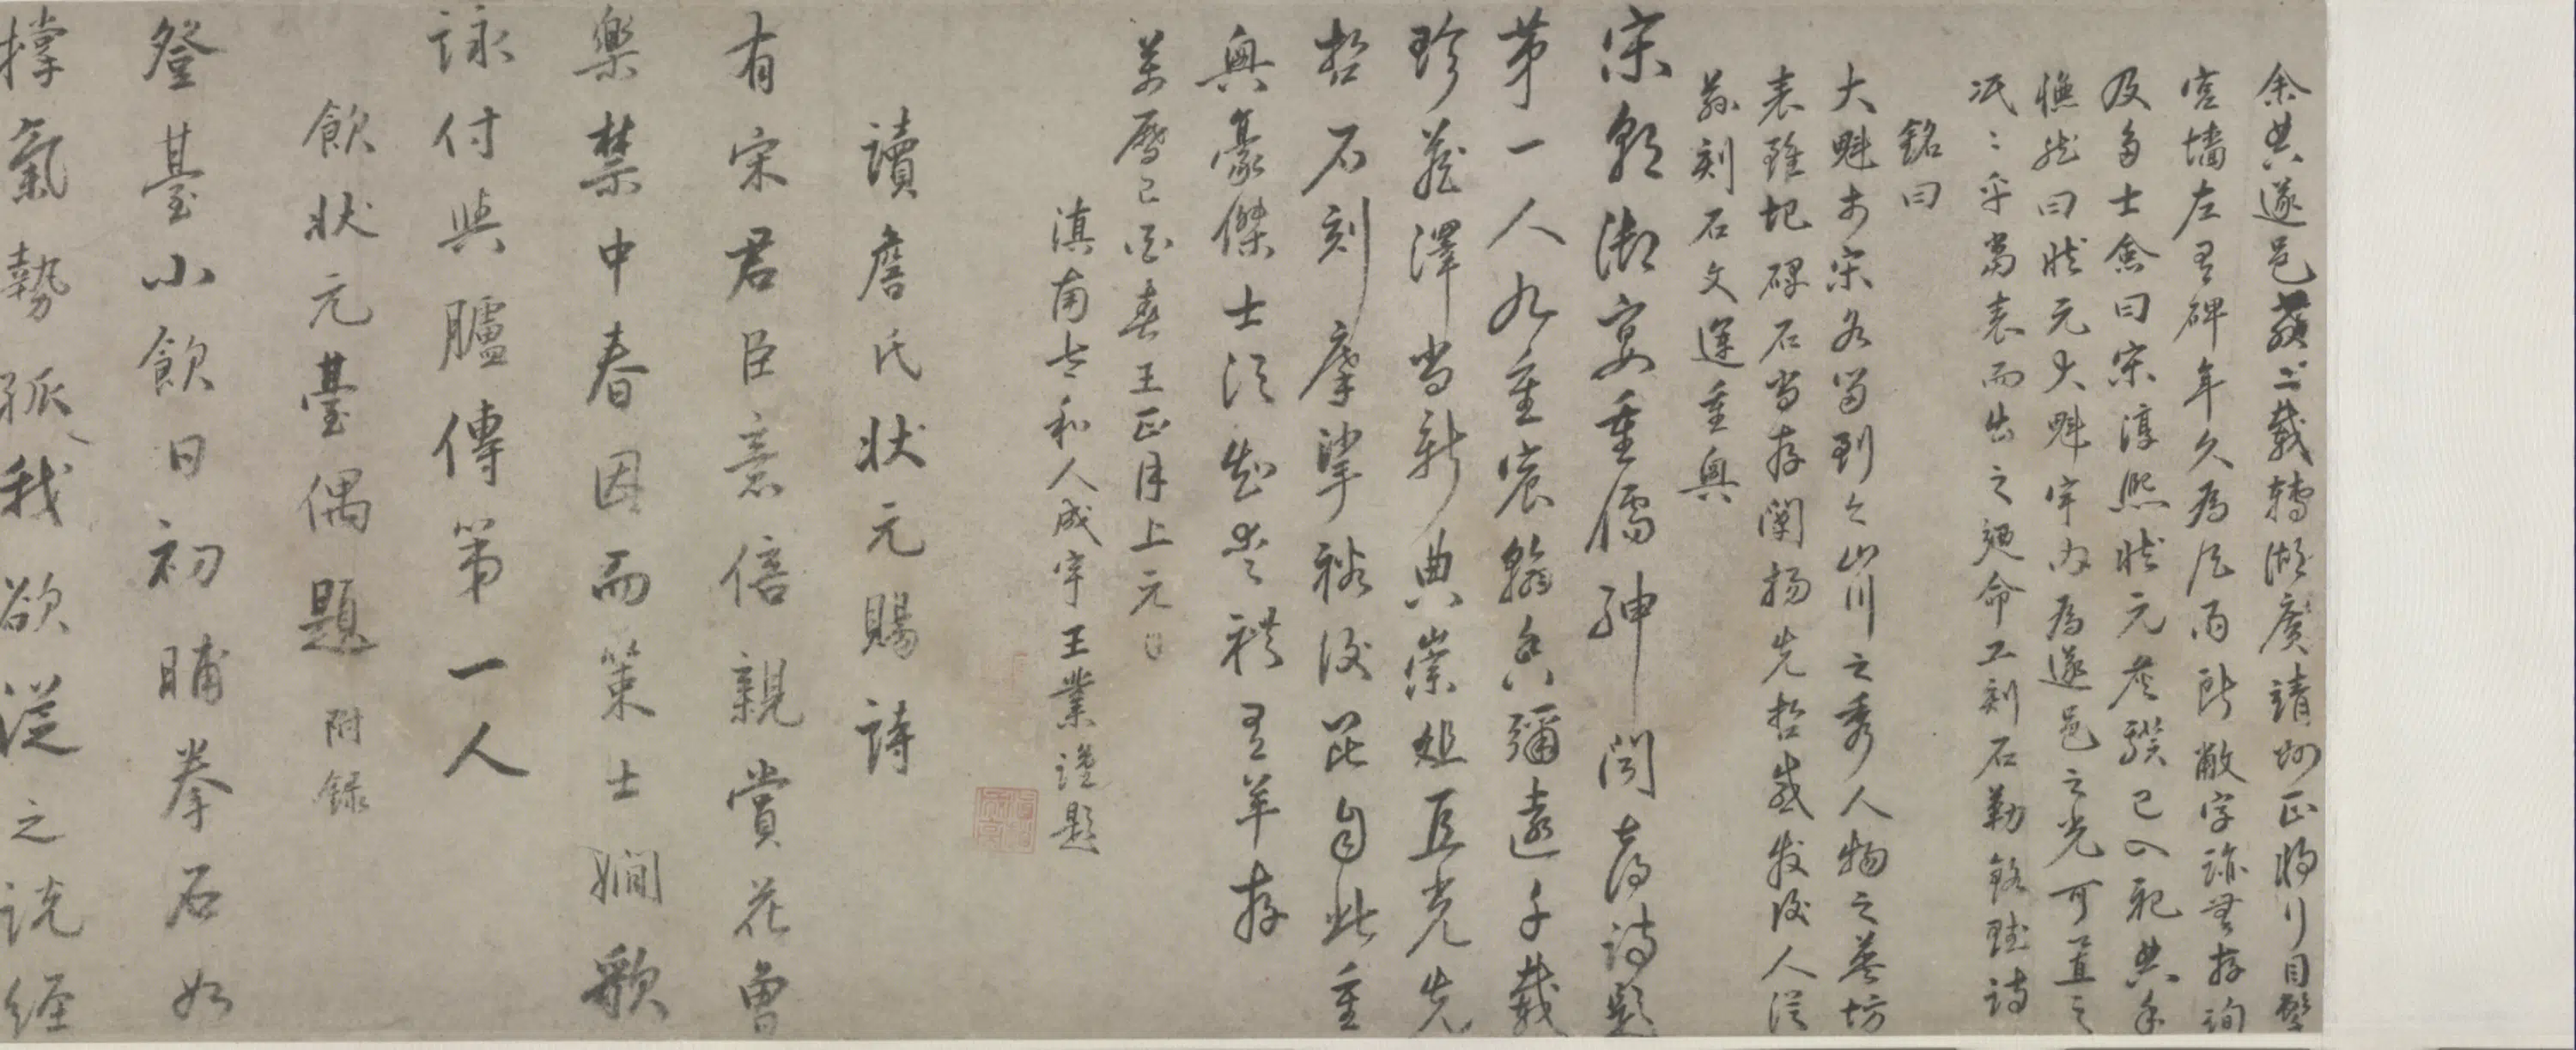 余興遂邑義二載轉湖廣靖州正將行目擊
宮墻左有碑年久為風雨所敝字跡無存詢
及多士僉曰宋淳熙狀元詹騤已入祀典余
憮然曰狀元大魁宇內為遂邑之光可置之
泯〻乎當表而出之迺命工刻石勒銘賦詩
銘曰
大魁於宋名留到今山川之秀人物之英坊
表雖圯碑石當存闡揚先哲感發後人從
茲刻石文運重興
宋朝御宴重儒紳聞喜詩題
第一人九重宸翰香彌遠千載
珍藏澤尚新典崇俎豆光先
哲石刻摩挲裕後昆自此重
興豪傑士須知崇禮有羊存
萬曆己酉春王正月上元日
滇南太和人成宇王業謹題
讀詹氏狀元賜詩
有宋君臣意倍親賞花曾
樂禁中春因而策士嫺歌
詠付與臚傳第一人
飲狀元臺偶題 附錄
登臺小飲日初晡拳石如
撑氣勢孤我欲從之說經